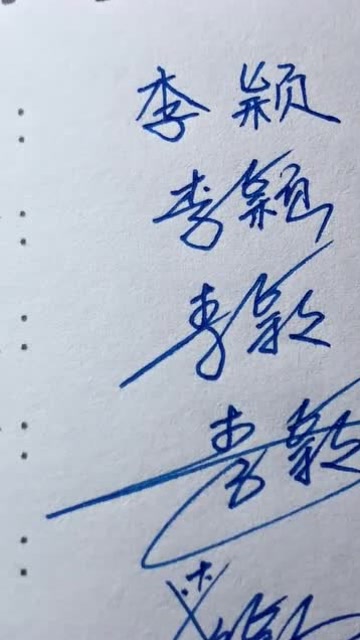 李颖
李颖
李颖
李颖